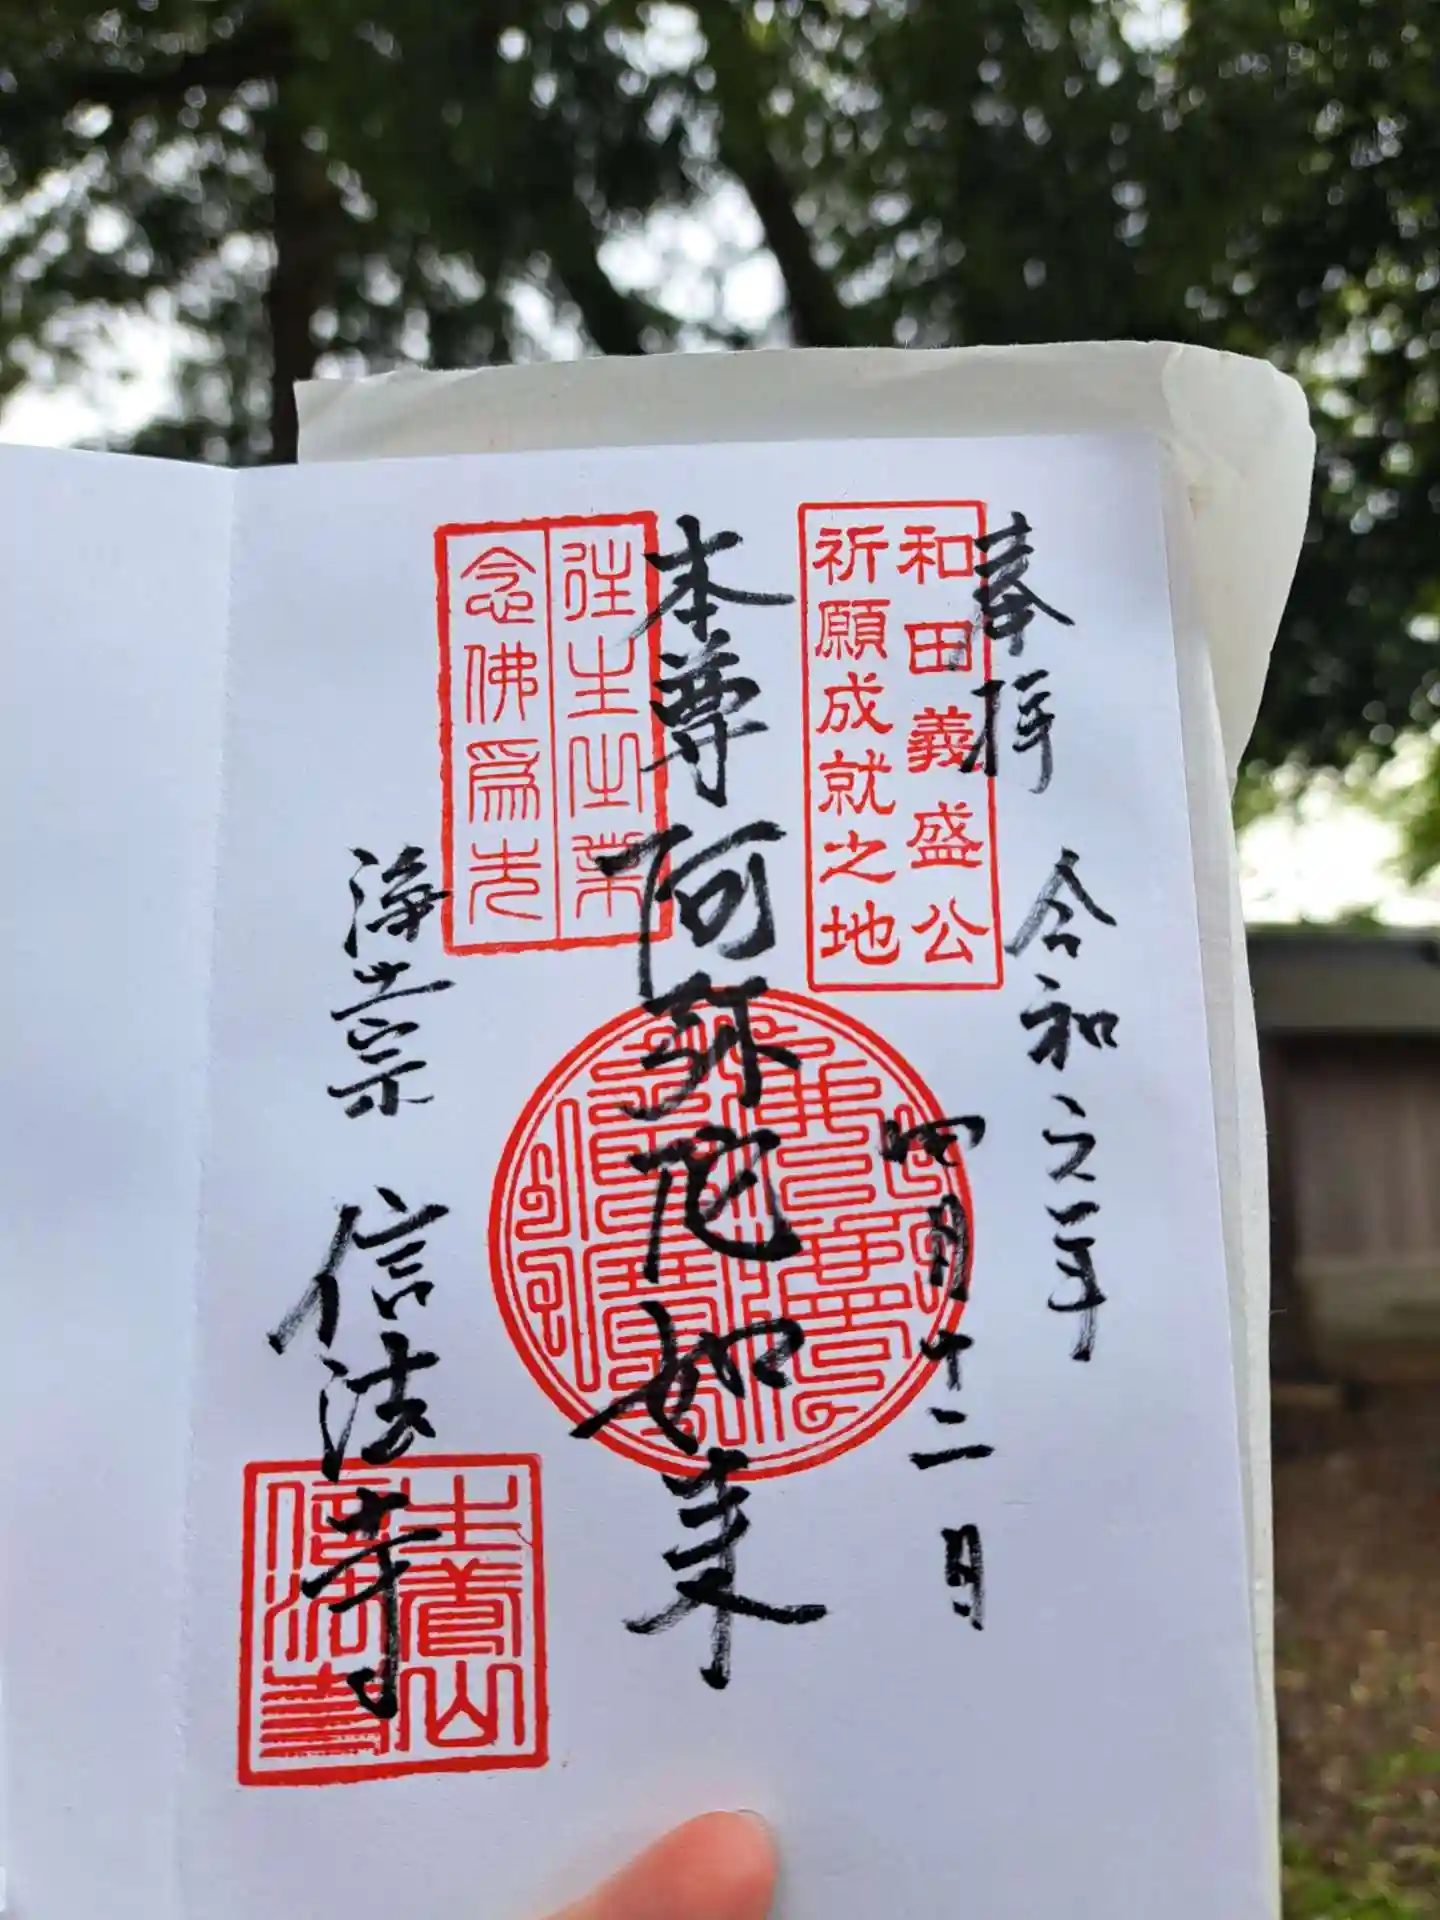 奉拝
令和六年
四月十二日
和田義盛公
祈願成就之地
本尊阿弥陀如来
往生之業
念佛爲先
浄土宗 信法寺
土養山
信法寺